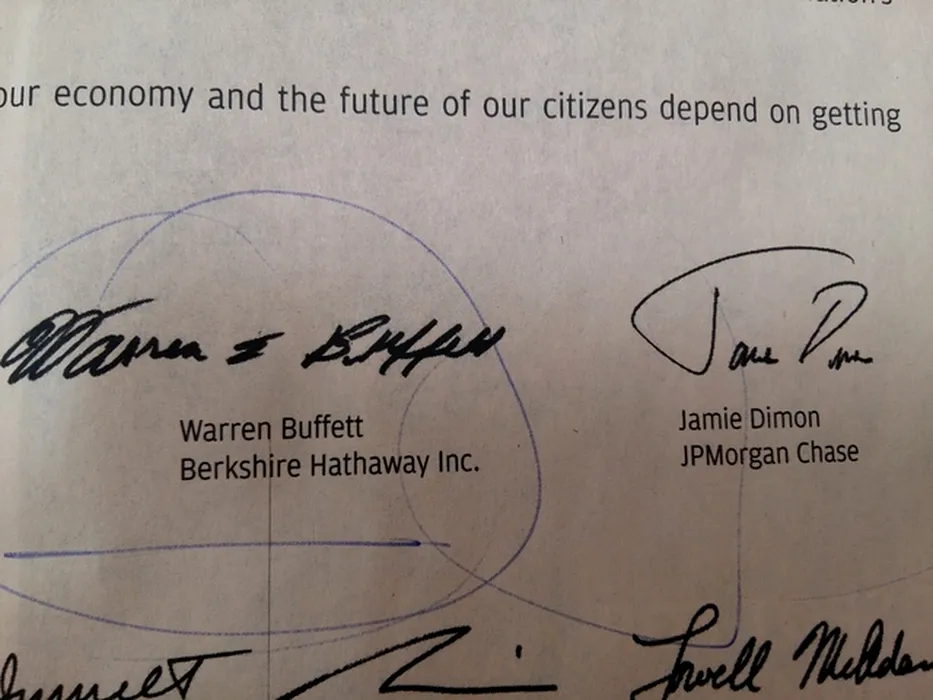 our economy and the future of our citizens depend on getting
Warren E Buffett
Jamie Dimon
Warren Buffett
Berkshire Hathaway Inc.
Jamie Dimon
JPMorgan Chase
Lowell McAdam